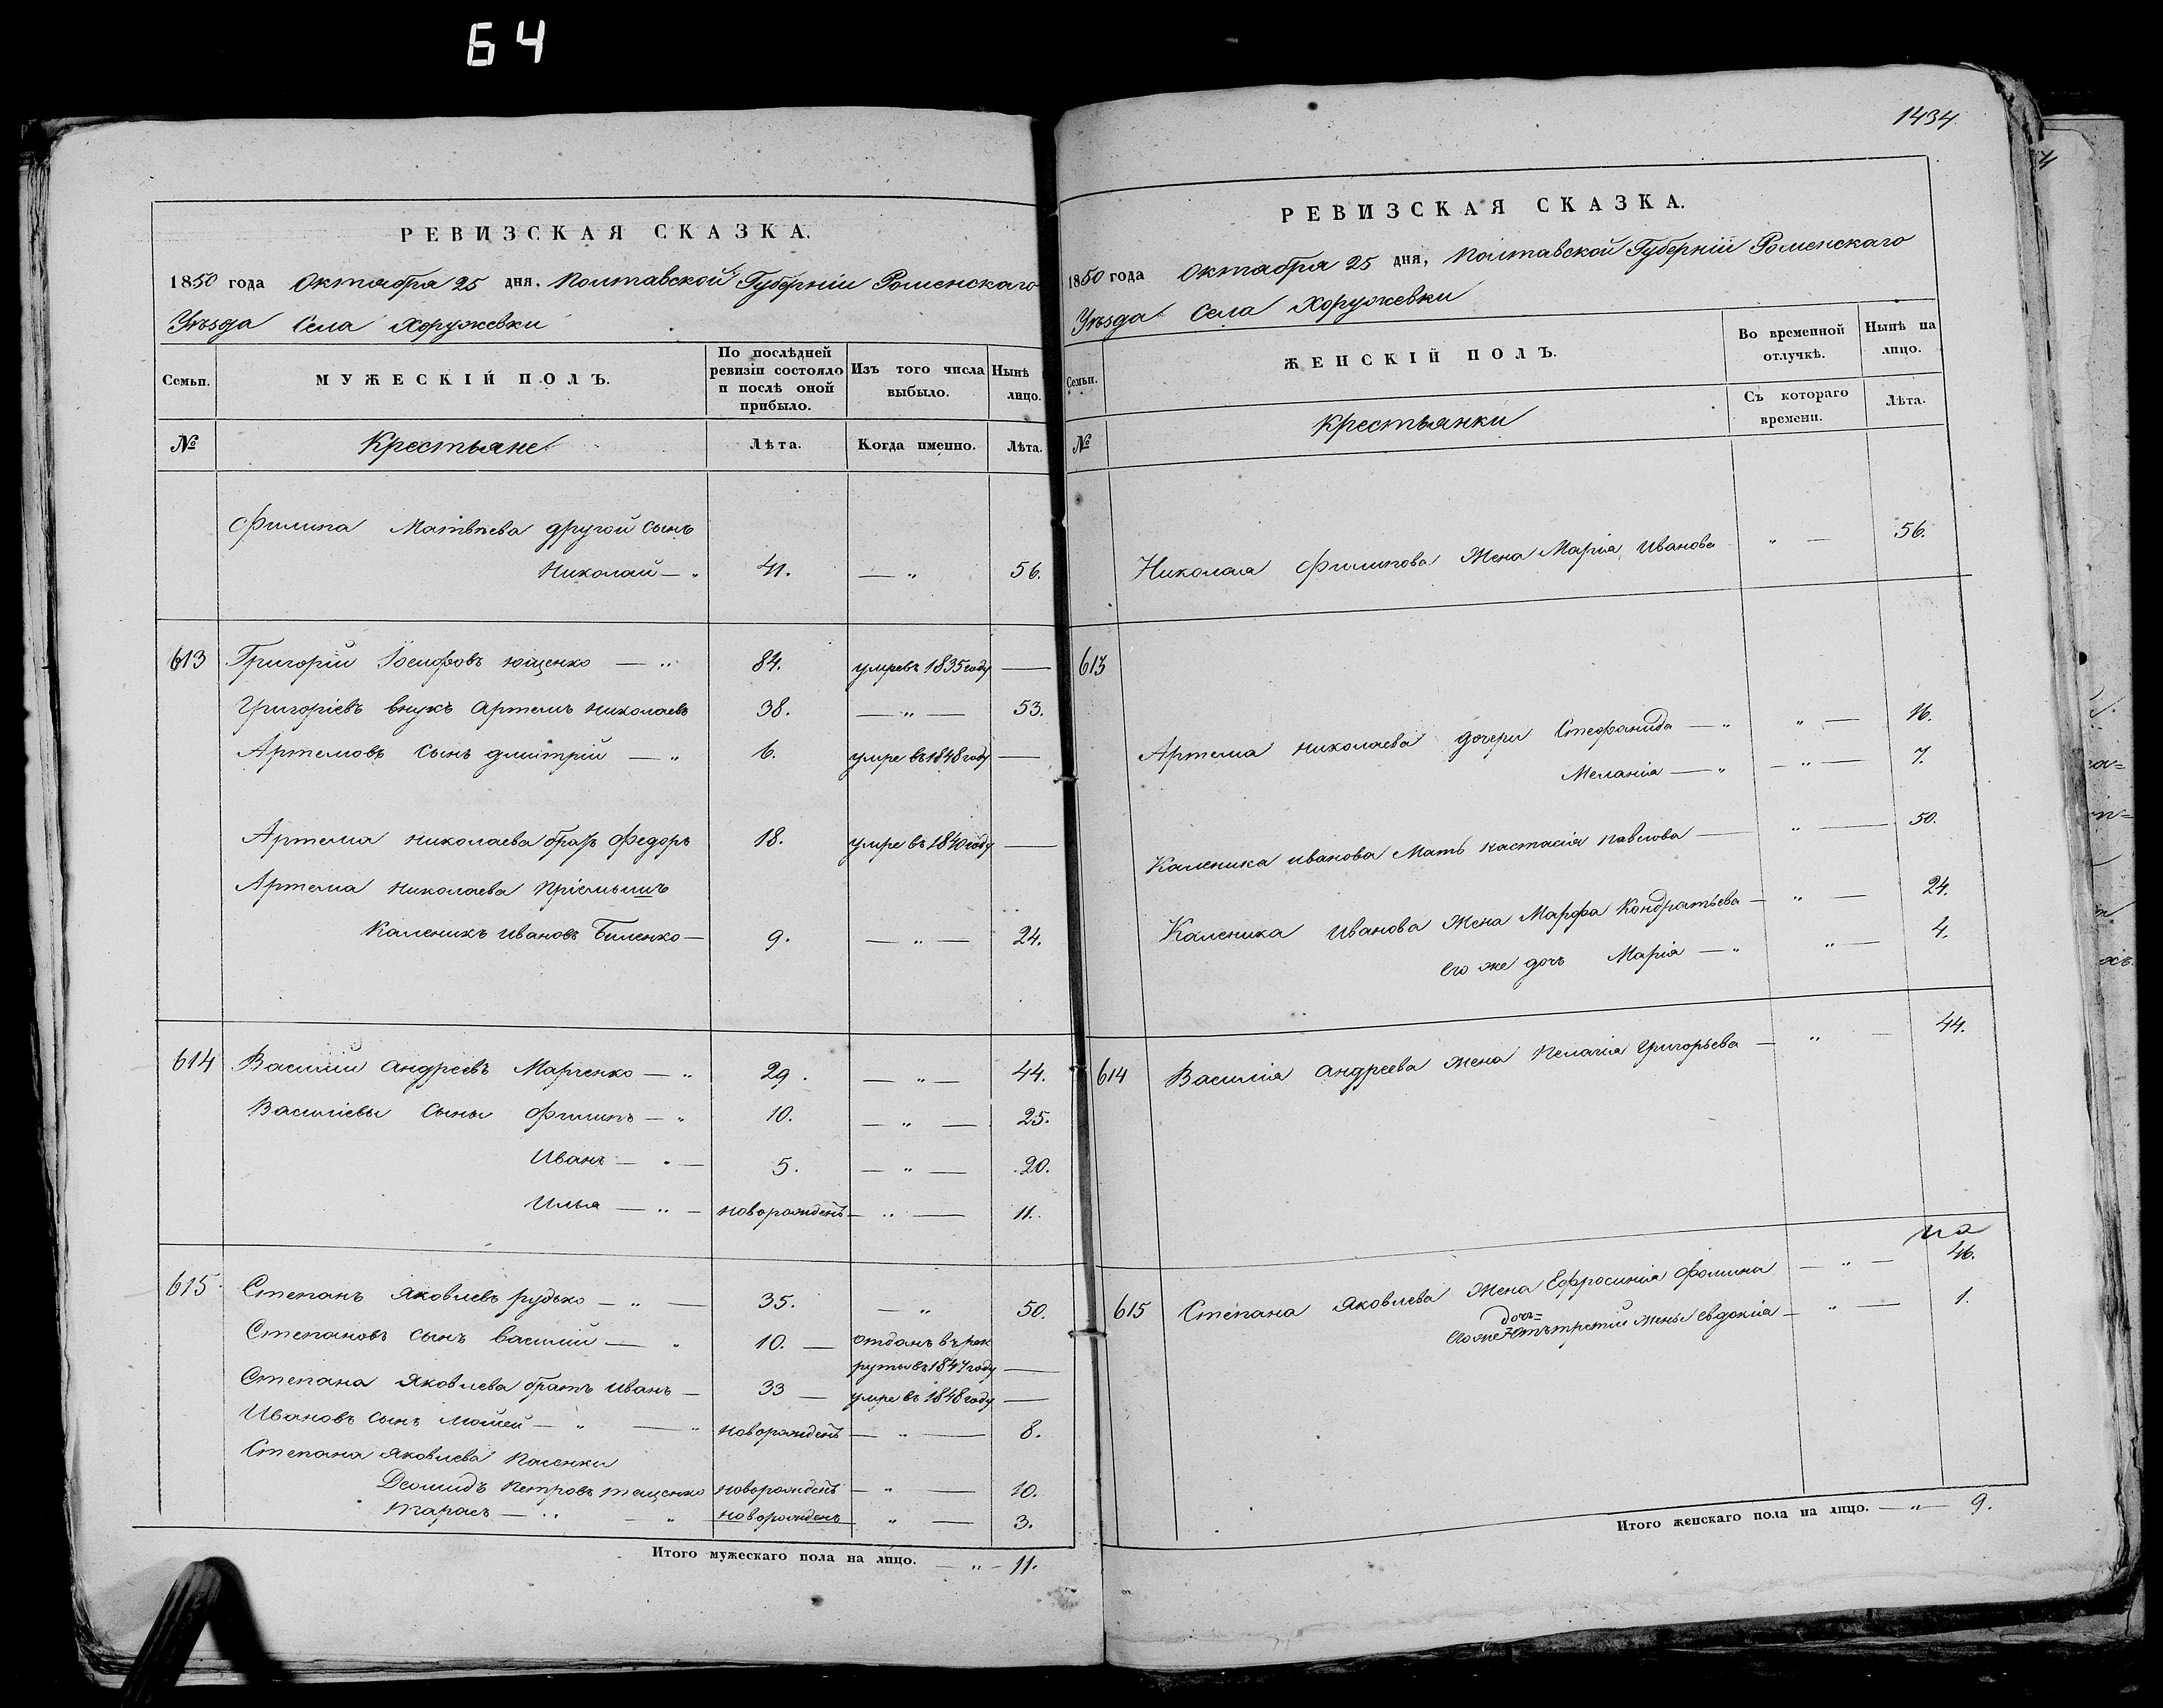 64
РЕВИЗСКАЯ СКАЗКА.
1850 года Октября 25 дня. Полтавской Губерніи Роменскаго
Уѣзда Села Хоружевки
Семьи.
МУЖЕСКІЙ ПОЛЪ.
По послѣдней
ревизіи состояло
и послѣ оной
прибыло.
Изъ того числа
выбыло.
Нынѣ
лицо.
№
Крестьяне
Лѣта.
Когда именно.
Лѣта.
Филипа Матвѣева другой сынъ
Николай — „ 41. — „ 56.
613 Григорій Іосифовъ Ющенко — „ 84. умре въ 1835 году —
Григоріевъ внукъ Артемъ Николаевъ 38. — „ — 53.
Артемовъ сынъ Дмитрій — „ 6. умре въ 1848 году —
Артема Николаева братъ Федоръ 18. умре въ 1840 году —
Артема Николаева пріемышъ
Каленикъ Ивановъ Биленко — 9. — „ — 24.
614 Василій Андреевъ Марченко — „ 29. — „ — 44.
Василіевы сыны Филипъ — „ 10. — „ — 25.
Иванъ — „ — 5. — „ — 20.
Илья — „ — новорожденъ — „ — 11.
615 Степанъ Яковлевъ Рудько — „ — 35. — „ 50.
Степановъ сынъ Василій — „ 10. — отданъ въ рек
руты въ 1847 году —
Степана Яковлева братъ Иванъ — 33 — умре въ 1848 году —
Ивановъ сынъ Мойсей — „ — „ новорожденъ — „ — 8.
Степана Яковлева пасенки
Деомидъ Петровъ Тещенко новорожденъ — „ — 10.
Тарасъ — „ — „ новорожденъ „ — 3.
Итого мужескаго пола на лицо. — „ — 11.
1434
РЕВИЗСКАЯ СКАЗКА.
1850 года Октября 25 дня, Полтавской Губерніи Роменскаго
Уѣзда Села Хоружевки
Семьи.
ЖЕНСКІЙ ПОЛЪ.
Во временной
отлучкѣ.
Нынѣ на
лицо.
Съ котораго
времени.
Лѣта.
№
Крестьянки
Николая Филипова Жена Марія Иванова „ — 56.
613
Артема Николаева дочери Стефанида — „ „ — 16.
Меланія — „ — „ — 7.
Каленика Иванова Мать Настасія Павлова — „ — 50.
Каленика Иванова Жена Марфа Кондратьева — „ — 24.
его же дочь Марія — „ „ — 4.
614 Василія Андреева Жена Пелагія Григорьева — „ — 44.
на
615 Степана Яковлева Жена Ефросинія Фомина — „ — 46.
дочь
его же отъ третій жены Евдокія — „ — 1.
Итого женскаго пола на лицо. — „ — 9.